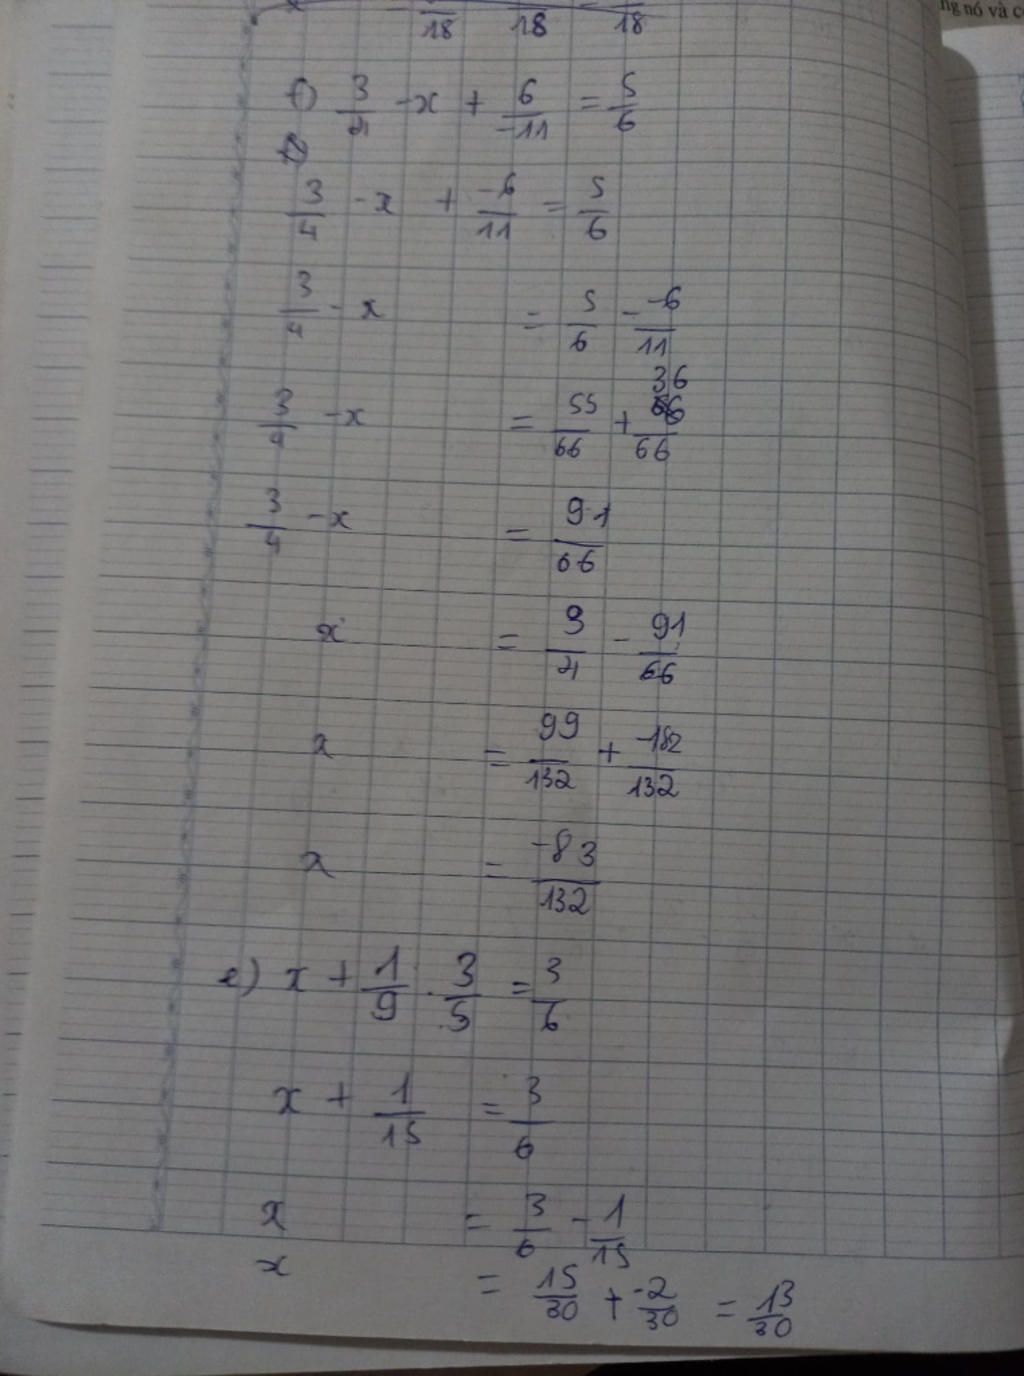 18 18 = 18
ng nó và c
f) 3/4 - x + 6/-11 = 5/6
3/4 - x + -6/11 = 5/6
3/4 - x = 5/6 - -6/11
3/4 - x = 55/66 + 36/66
3/4 - x = 91/66
x = 3/4 - 91/66
x = 99/132 + -182/132
x = -83/132
e) x + 1/9 . 3/5 = 3/6
x + 1/15 = 3/6
x = 3/6 - 1/15
x = 15/30 + -2/30 = 13/30